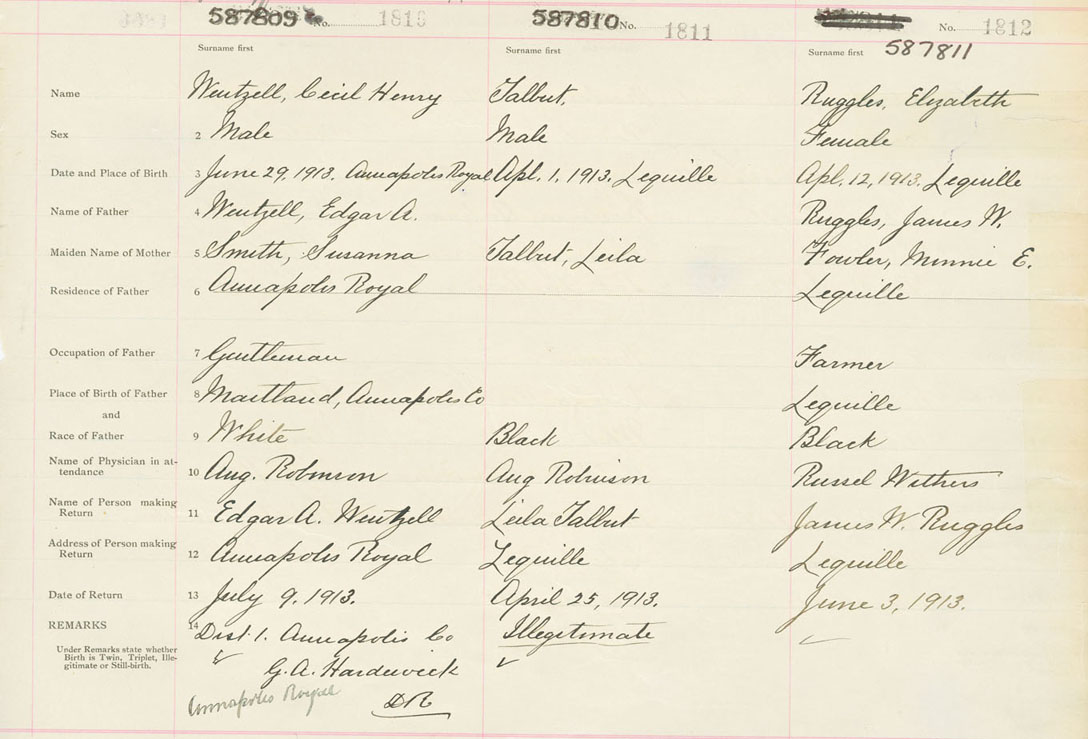 587809 No. 1810 587810 No. 1811 No. 1812
Surname first Surname first Surname first 587811
Name Wentzell, Cecil Henry Talbut, Ruggles, Elizabeth
Sex 2 Male Male Female
Date and Place of Birth 3 June 29, 1913. Annapolis Royal Apl. 1, 1913. Lequille Apl. 12, 1913. Lequille
Name of Father 4 Wentzell, Edgar A. Ruggles, James W.
Maiden Name of Mother 5 Smith, Susanna Talbut, Leila Fowler, Minnie E.
Residence of Father 6 Annapolis Royal Lequille
Occupation of Father 7 Gentleman Farmer
Place of Birth of Father 8 Maitland, Annapolis Co Lequille
and
Race of Father 9 White Black Black
Name of Physician in at-
tendance 10 Aug. Robinson Aug Robinson Russel Withers
Name of Person making
Return 11 Edgar A. Wentzell Leila Talbut James W. Ruggles
Address of Person making
Return 12 Annapolis Royal Lequille Lequille
Date of Return 13 July 9. 1913. April 25, 1913. June 3, 1913.
REMARKS 14 Dist. 1. Annapolis Co Illegitimate
Under Remarks state whether
Birth is Twin, Triplet, Ille-
gitimate or Still-birth.
G. A. Hardwick
Annapolis Royal DR